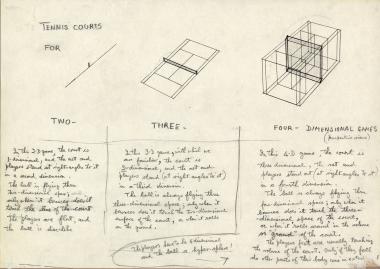 TENNIS COURTS
FOR
TWO-
THREE-
FOUR-DIMENSIONAL GAMES
(perspective views)
In the 2-D game, the court is
1-dimensional, and the net and
players stand at right angles to it
in a second dimension.
The ball is flying thru
two-dimensional space and
only when it bounces does it
touch the line of the court.
The players are flat, and
the ball is disc like
In this 3-D game, with which we
are familiar, the court is
2-dimensional, and the net and
players stand (at right angles to it)
in a third dimension.
The ball is always flying thru
three-dimensional space; only when it
bounces does it touch the two-dimensional
surface of the court, or when it rolls
on the ground.
In this 4-D game, the court is
three dimensional, the net and
players stand (at right angles to it)
in a fourth dimension.
The ball is always flying thru
four dimensional space; only when it
bounces does it touch the three-
dimensional space of the court,
or when it rolls around in the volume
or "ground" of the court.
The players feet are usually touching
the volume of the court. Only if they fall
do other parts of their body come in
The players have to be 4 dimensional
and the ball a hyper-sphere!